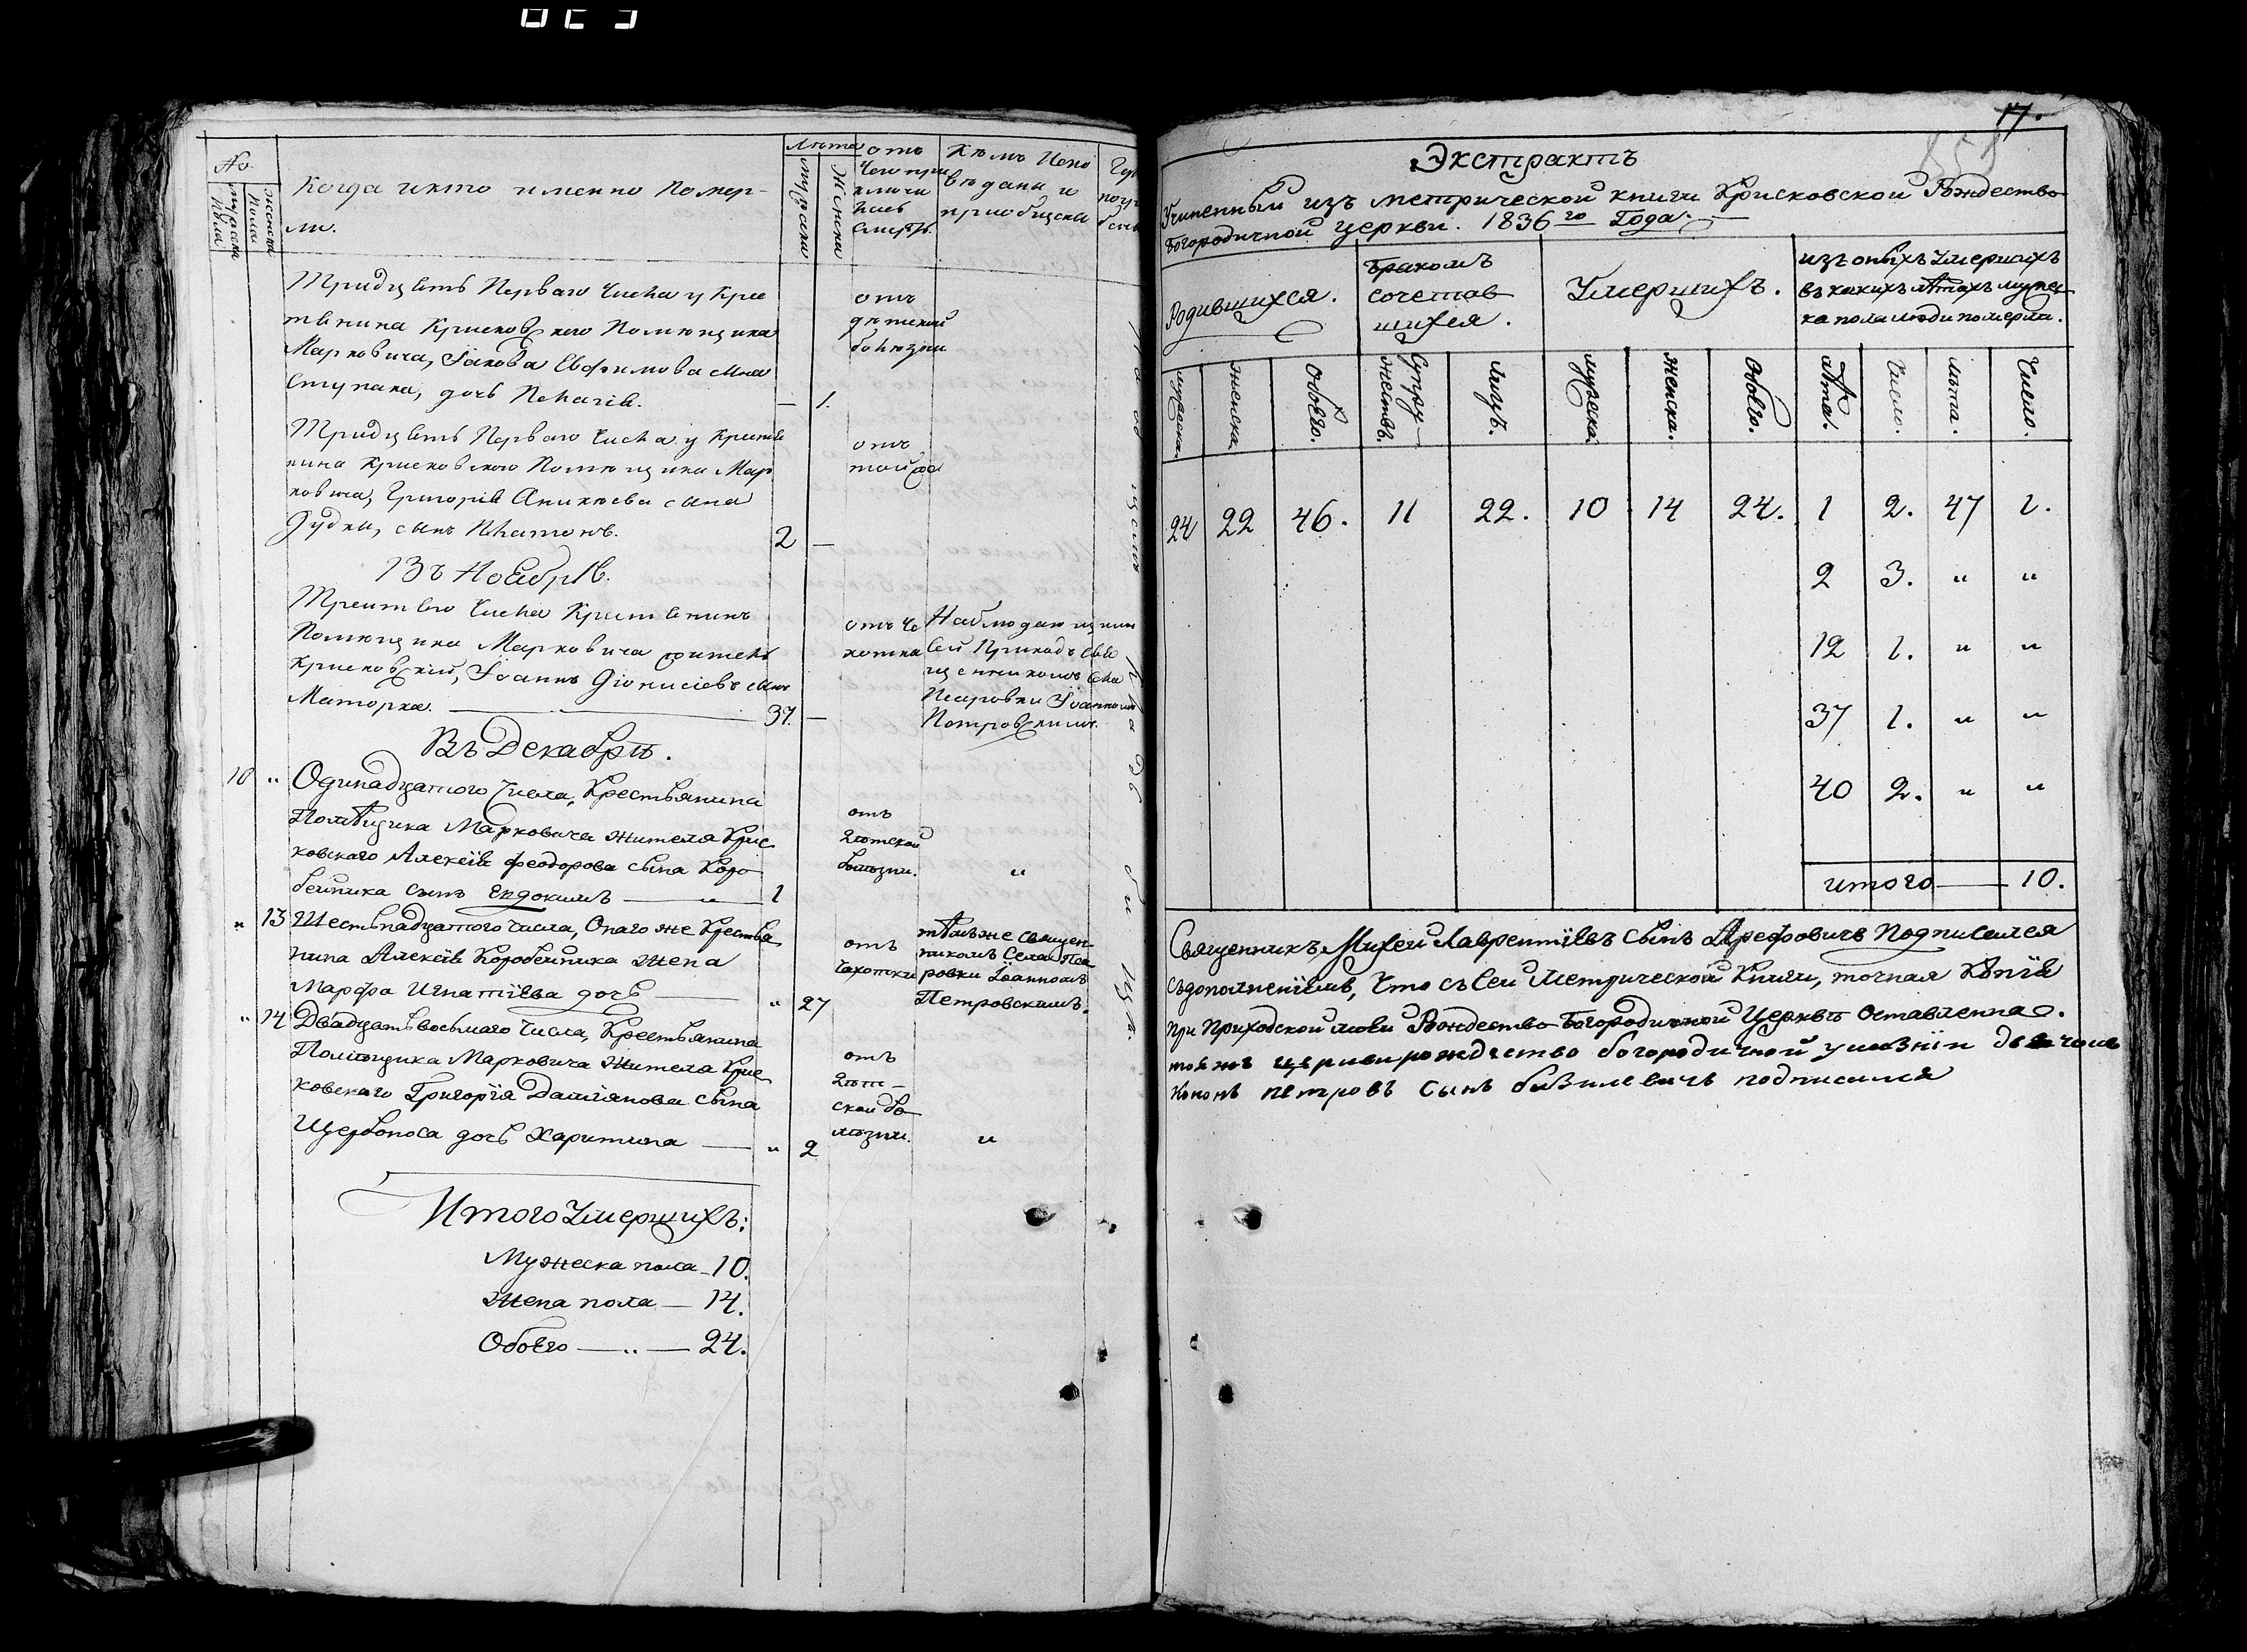 No
мужеска пола
женска пола
Когда и кто именно помер-
ли.
Лѣта
мужеска
женска
отъ
чего при
ключи
лась
смерть.
Кѣмъ испо
вѣданы и
приобщены
Тридцять перваго числа у крес
тянина Крисковского помѣщика
Марковича, Іакова Евфимова сына
Ступака, дочь Пелагія. — 1.
отъ
дѣтской
болѣзни
Тридцять перваго числа у крестя
нина Крисковского помѣщика Мар
ковича, Григорія Аникѣева сына
Дудки, сынъ Платонъ. 2 —
отъ
той же
Въ Ноябрѣ.
Третяго числа крестянинъ
помѣщика Марковича житель
Крисковскій, Іоаннъ Діонисіевъ сынъ
Маторка. 37. —
отъ че
хотки
Наблюдающимъ
сей приходъ свя
щенникомъ села
Псаровки Іоанномъ
Петровскимъ.
Въ Декабрѣ.
10 " Одинадцатого числа, крестьянина
помѣщика Марковича жителя Крис
ковскаго Алексія Феодорова сына Коро
бейника сынъ Евдокимъ — " 1
отъ
дѣтской
болѣзни.
"
" 13 Шестьнадцатого числа, онаго же крестья
нина Алексія Коробейника жена
Марфа Игнатіева дочь — " 27
отъ
чахотки
тѣмъ же священ-
никомъ села Пса
ровки Іоанномъ
Петровскимъ.
" 14 Двадцать восьмаго числа, крестьянина
помѣщика Марковича жителя Крис
ковскаго Григорія Даміянова сына
Щербоноса дочь Харитина — " 2
отъ
дѣт-
ской бо
лѣзни.
"
Итого умершихъ:
Мужеска пола - 10.
Жена пола — 14.
Обоего — " — 24.
17.
Экстрактъ
Учиненный изъ метрической книги Крисковской Рождество
Богородичной церкви. 1836го Года.
Родившихся.
Бракомъ
сочетав
шихся.
Умершихъ.
изъ оныхъ умершихъ
въ какихъ лѣтахъ мужес-
ка пола люди померли.
мужеска.
женска.
обоего.
Супру-
жествъ.
лицъ.
мужеска.
женска.
обоего.
лѣта.
Число.
лѣта.
Число.
24 22 46. 11 22. 10 14 24. 1 2. 47 1.
2 3. " "
12 1. " "
37 1. " "
40 2. " "
итого — 10.
Священникъ Михей Лаврентіевъ сынъ Арефовичь подписался
съ дополненіемъ, что съ сей метрической книги, точная копія
при приходской моей Рождество-Богородичной церквѣ оставленна.
тояжъ церкви рождество богородичной дьячокъ
Кононъ петровъ сынъ базилевичъ подписался